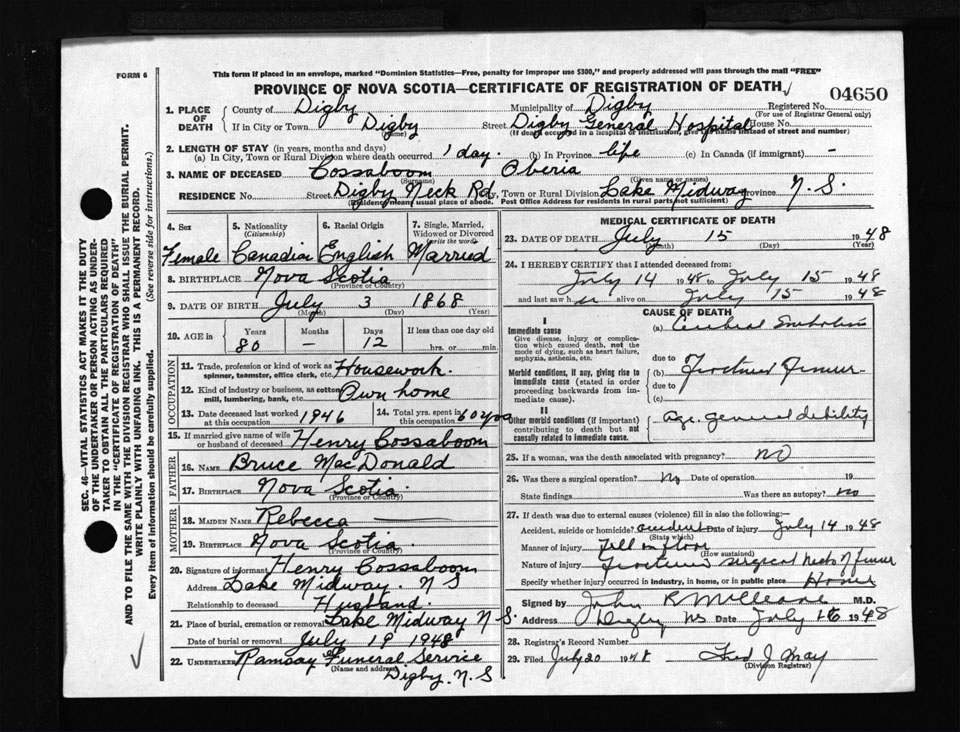 FORM 6
This form if placed in an envelope, marked "Dominion Statistics—Free, penalty for improper use $300," and properly addressed will pass through the mail "FREE"
PROVINCE OF NOVA SCOTIA—CERTIFICATE OF REGISTRATION OF DEATH
04650
1. PLACE OF DEATH
County of Digby Municipality of Digby Registered No.
(For use of Registrar General only)
If in City or Town Digby Street Digby General Hospital House No.
(name) (If death occurred in a hospital or institution, give its name instead of street and number)
2. LENGTH OF STAY (in years, months and days)
(a) In City, Town or Rural Division where death occurred 1 day. (b) In Province life (c) In Canada (if immigrant) -
3. NAME OF DECEASED Cossaboom Oberia
(Surname) (Given name or names)
RESIDENCE No. Street Digby Neck Rd. City, Town or Rural Division Lake Midway Province N.S.
(Residence means usual place of abode. Post Office Address for residents in rural parts not sufficient)
4. Sex 5. Nationality (Citizenship) 6. Racial Origin 7. Single, Married, Widowed or Divorced (write the word)
Female Canadian English Married
8. BIRTHPLACE Nova Scotia
(Province or Country)
9. DATE OF BIRTH July 3 1868
(Month) (Day) (Year)
10. AGE in Years Months Days If less than one day old
80 - 12 hrs. or min.
OCCUPATION
11. Trade, profession or kind of work as spinner, teamster, office clerk, etc. Housework.
12. Kind of industry or business, as cotton mill, lumbering, bank, etc. Own home
13. Date deceased last worked at this occupation 1946 14. Total yrs. spent in this occupation 60 yrs
15. If married give name of wife or husband of deceased Henry Cossaboom
FATHER
16. NAME Bruce MacDonald
17. BIRTHPLACE Nova Scotia.
(Province or Country)
MOTHER
18. MAIDEN NAME Rebecca
19. BIRTHPLACE Nova Scotia
(Province or Country)
20. Signature of informant Henry Cossaboom
Address Lake Midway. N S
Relationship to deceased Husband.
21. Place of burial, cremation or removal Lake Midway N S.
Date of burial or removal July 19 1948
22. UNDERTAKER Ramsay Funeral Service
(Name and address)
Digby. N. S
MEDICAL CERTIFICATE OF DEATH
23. DATE OF DEATH July 15 1948
(Month) (Day) (Year)
24. I HEREBY CERTIFY that I attended deceased from:
July 14 1948 to July 15 1948
and last saw h er alive on July 15 1948
CAUSE OF DEATH
I
Immediate cause (a) Cerebral Embolism
Give disease, injury or complication which caused death, not the mode of dying, such as heart failure, asphyxia, asthenia, etc.
due to
Morbid conditions, if any, giving rise to immediate cause (stated in order proceeding backwards from immediate).
(b) Fractured Femur
due to
(c)
II
Other morbid conditions (if important) contributing to death but not causally related to immediate cause.
Age. general debility
25. If a woman, was the death associated with pregnancy? NO
26. Was there a surgical operation? No Date of operation 19
State findings Was there an autopsy? no
27. If death was due to external causes (violence) fill in also the following:—
Accident, suicide or homicide? accident Date of injury July 14 1948
(State which)
Manner of injury Fell on floor
(How sustained)
Nature of injury Fracture surgical neck of femur
Specify whether injury occurred in industry, in home, or in public place Home
Signed by John R M.D.
Address Digby NS Date July 16 1948
28. Registrar's Record Number
29. Filed July 20 1948 Fred J May
(Division Registrar)
SEC. 46—VITAL STATISTICS ACT MAKES IT THE DUTY
OF THE UNDERTAKER OR PERSON ACTING AS UNDER-
TAKER TO OBTAIN ALL THE PARTICULARS REQUIRED
IN THE "CERTIFICATE OF REGISTRATION OF DEATH"
AND TO FILE THE SAME WITH THE DIVISION REGISTRAR WHO SHALL ISSUE THE BURIAL PERMIT.
WRITE PLAINLY WITH UNFADING INK. THIS IS A PERMANENT RECORD.
Every item of information should be carefully supplied. (See reverse side for instructions.)